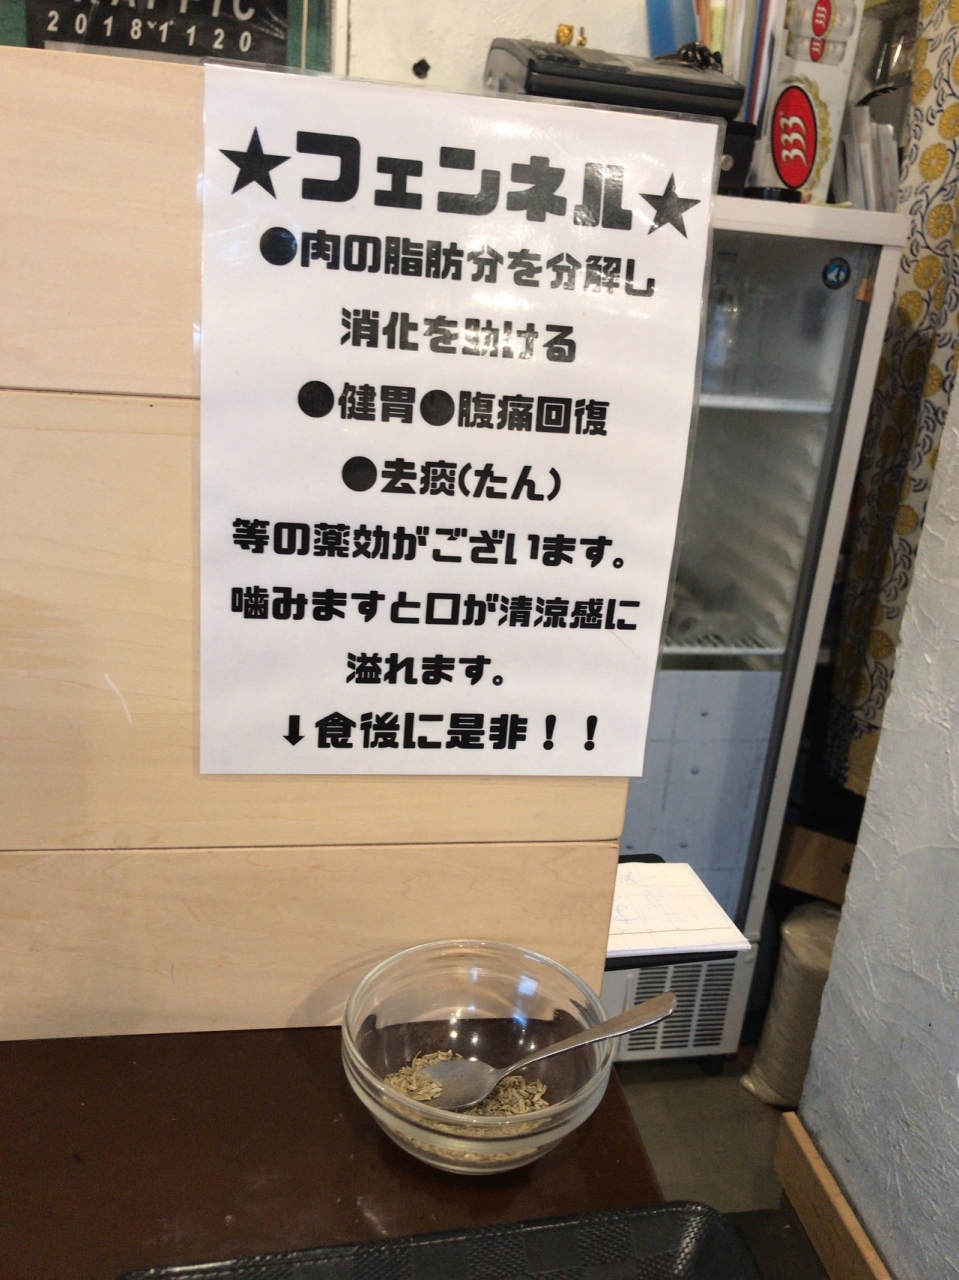 2018 1 120
★フェンネル★
●肉の脂肪分を分解し
消化を助ける
●健胃●腹痛回復
●去痰(たん)
等の薬効がございます。
噛みますと口が清涼感に
溢れます。
↓食後に是非！！
333
333
333